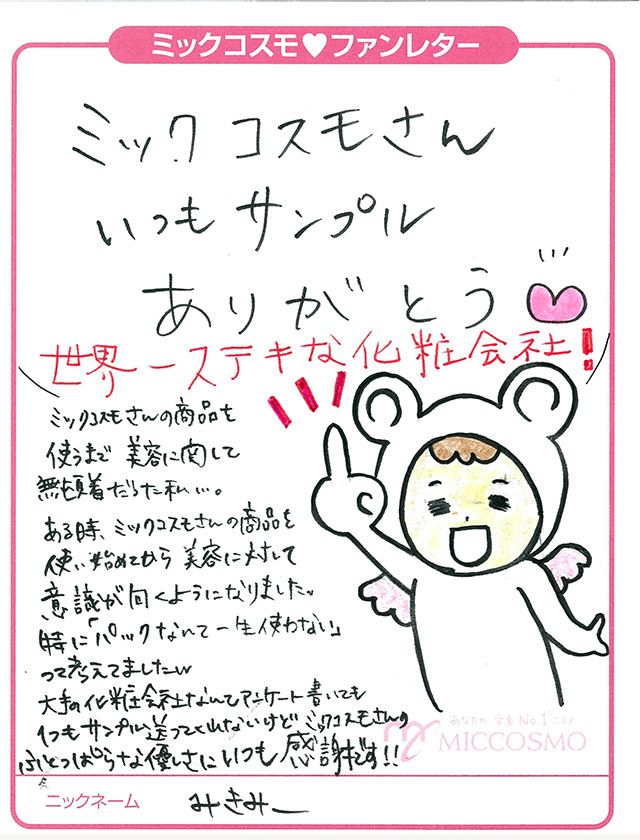 ミックコスモ♥ファンレター
ミックコスモさん
いつもサンプル
ありがとう
世界一ステキな化粧会社!
ミックコスモさんの商品を
使うまで美容に関して
無頓着だった私…。
ある時、ミックコスモさんの商品を
使い始めてから美容に対して
意識が向くようになりました。
特に「パックなんて一生使わない」
って考えてましたw
大手の化粧会社なんてアンケート書いても
1つもサンプル送ってくれないけどミックコスモさんの
ふとっぱらな優しさにいつも感謝です!!
あなたの 定番 No.1 コスメ
MICCOSMO
ニックネーム
みきみー